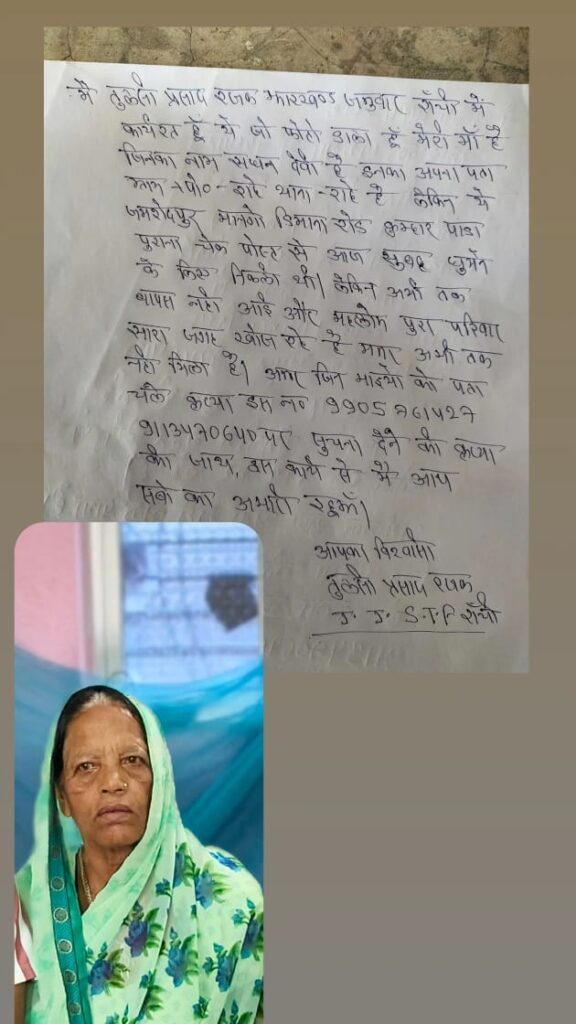 मैं तुलसी प्रसाद रजक झारखण्ड जगुवार राँची में
कार्यरत हूँ ये जो फोटो डाला हूँ मेरी माँ है
जिनका नाम सघन देवी है इनका अपना पता
ग्राम + पो० - राहे थाना - राहे है लेकिन ये
जमशेदपुर मानगो डिमना रोड कुम्हार पाडा
पुराना चेक पोस्ट से आज सुबह घुमने
के लिए निकली थी। लेकिन अभी तक
वापस नहीं आई और हमलोग पुरा परिवार
सारा जगह खोज रहे है मगर अभी तक
नहीं मिला है। अगर जिन भाईयों को पता
चले कृप्या इस न० 9905761427
9113470640 पर सुचना देने की कृपा
की जाय, इस कार्य से मैं आप
सबों का अभारी रहूगाँ।
आपका विश्वासी
तुलसी प्रसाद रजक
J. J. S.T.F राँची